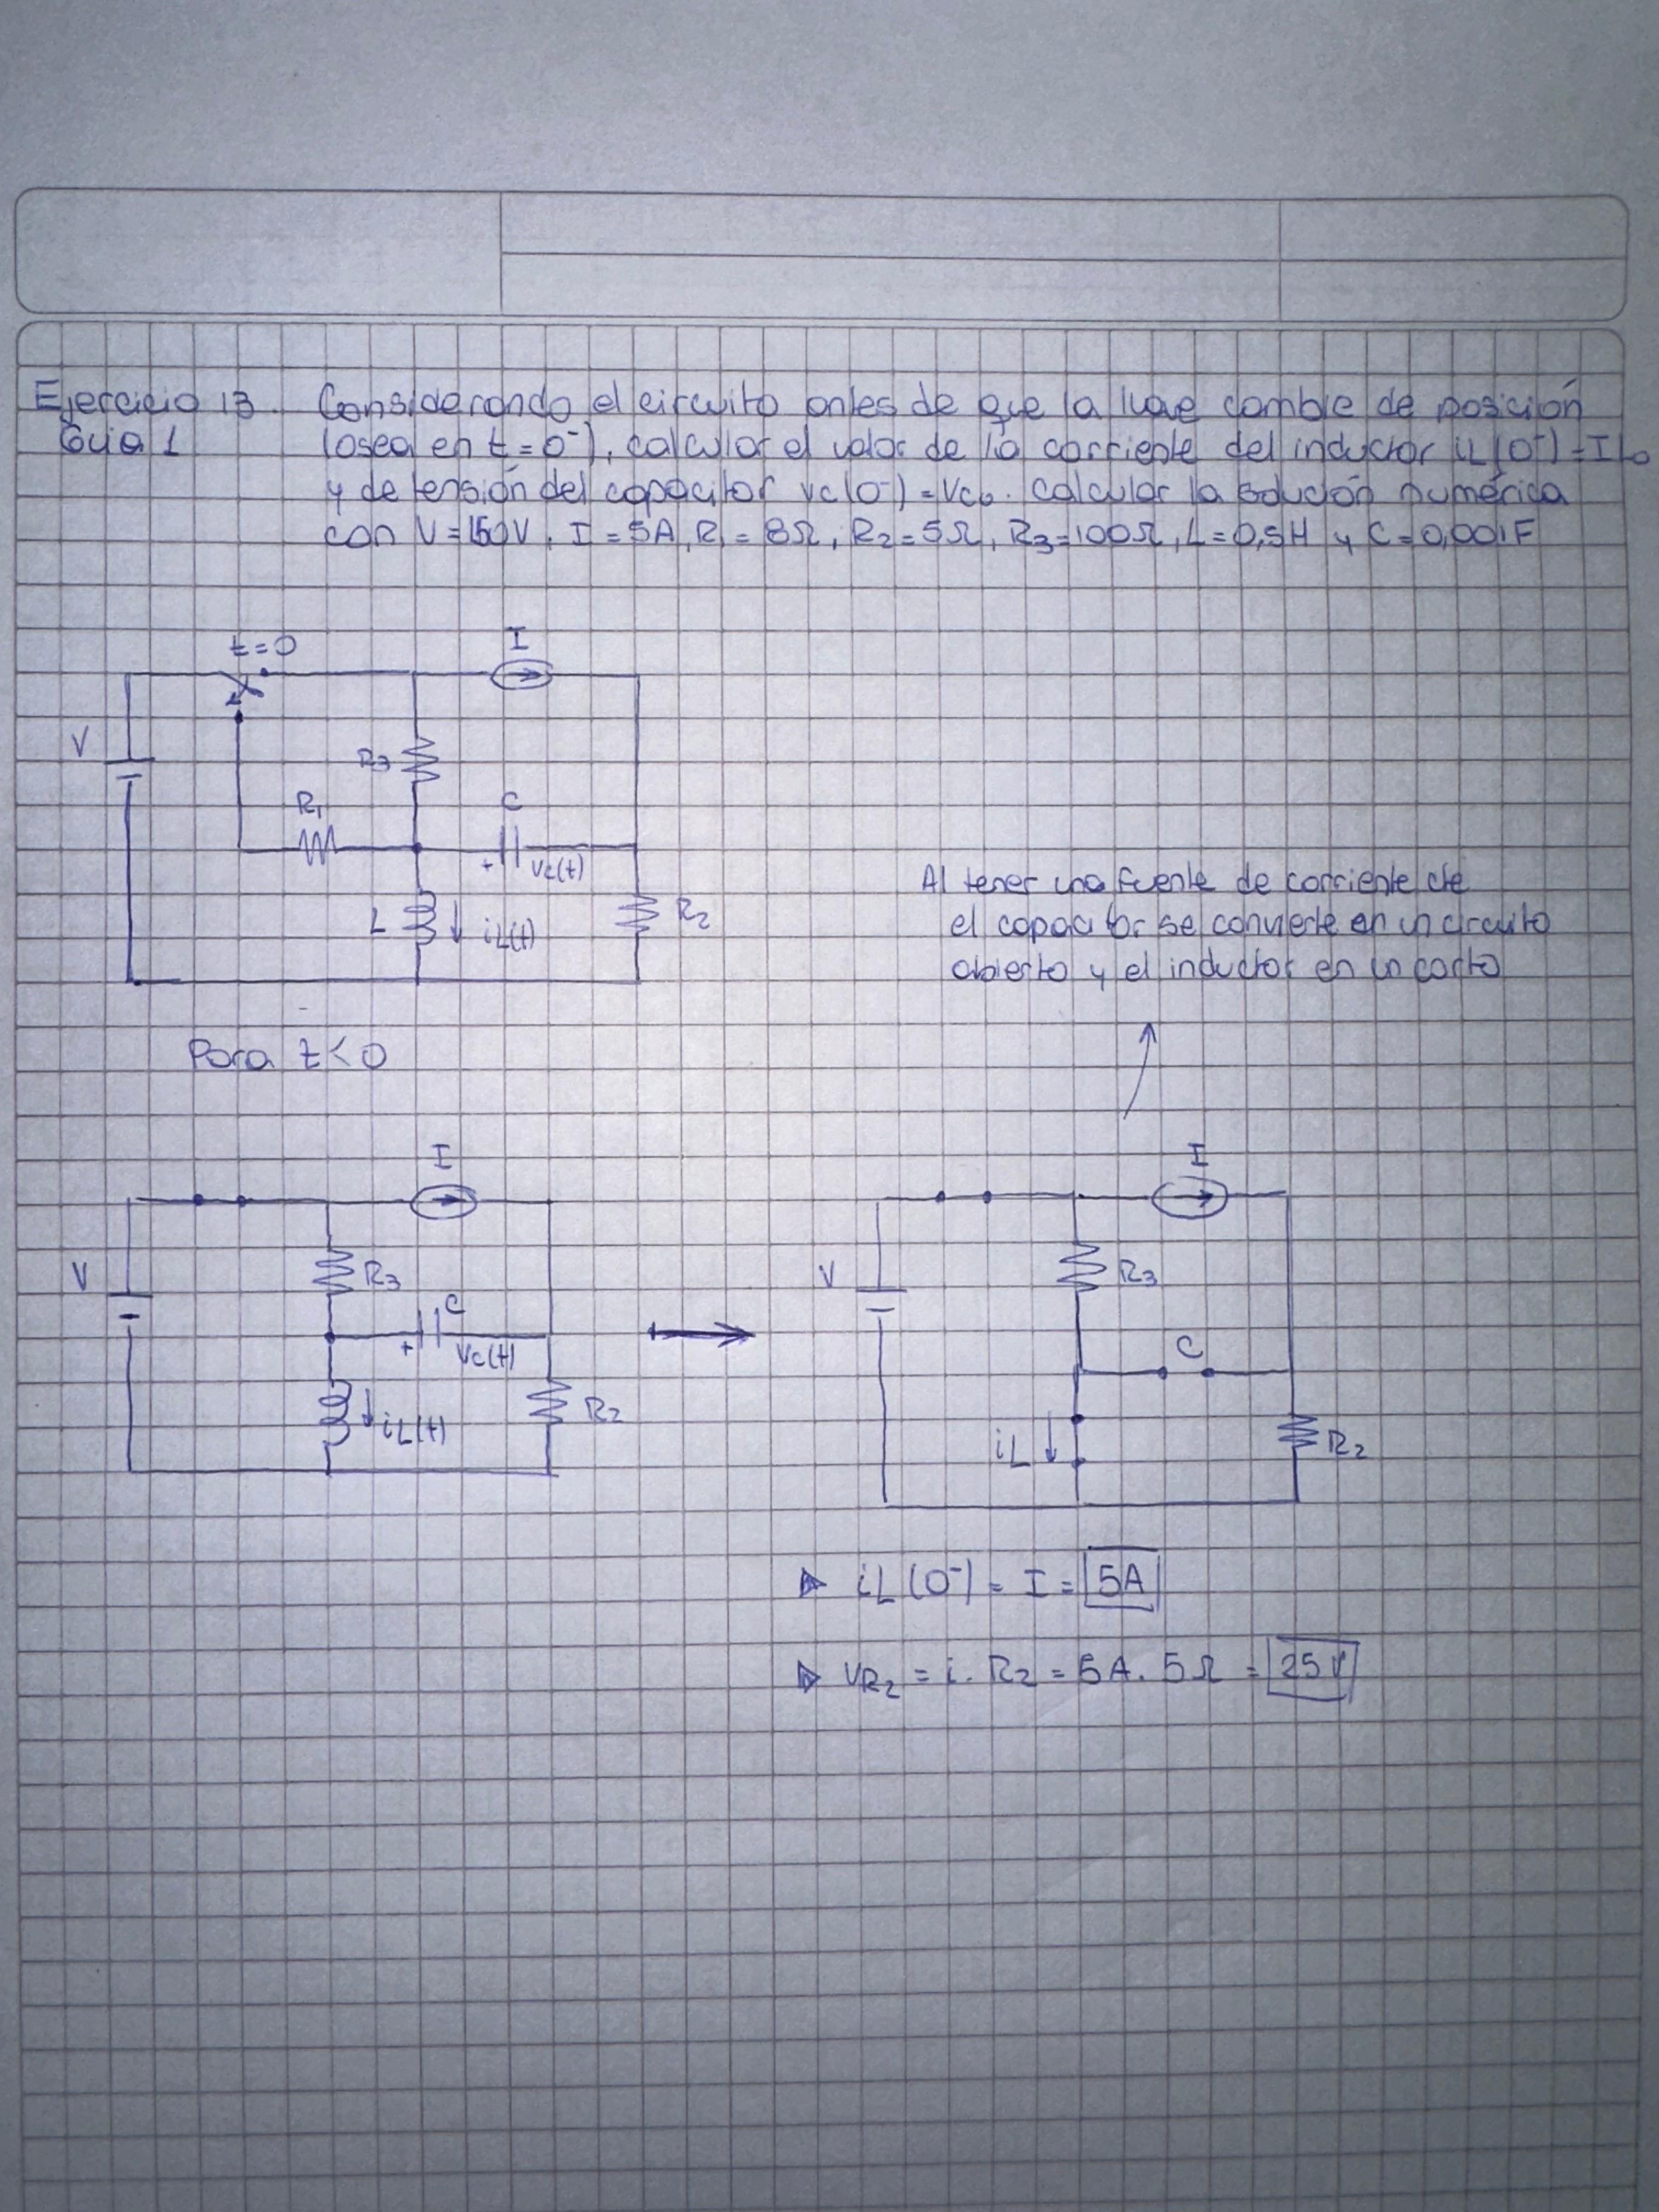 Ejercicio 13. Considerando el circuito antes de que la llave cambie de posición
Guia 1 (osea en t=0⁻), calcular el valor de la corriente del inductor iL(0⁻)=IL0
y de tensión del capacitor vc(0⁻)=Vc0. Calcular la solución numérica
con V=150V, I=5A, R1=8Ω, R2=5Ω, R3=100Ω, L=0,5H y C=0,001F
t=0
I
V
R3
R1
C
+
Vc(t)
L
iL(t)
R2
Al tener una fuente de corriente cte
el capacitor se convierte en un circuito
abierto y el inductor en un corto
Para t<0
I
I
V
R3
V
R3
C
+
Vc(t)
C
iL(t)
R2
iL
R2
iL(0⁻) = I = 5A
VR2 = i. R2 = 5A. 5Ω = 25V